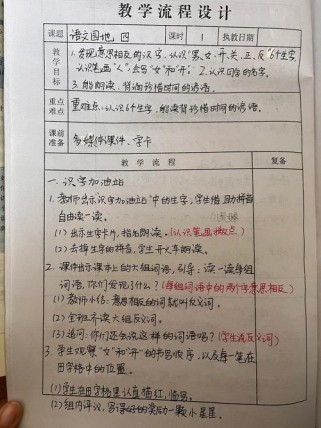 教学流程设计
课题 语文园地 四 课时 1 执教日期
教学目标 1. 发现意思相反的汉字,认识"黑、女、开、关、正、反"6个生字
认识笔画"人",会写"女"和"开"; 2. 认识四季的名字.
3. 能朗读、背诵珍惜时间的谚语.
重点难点 重难点:认识6个生字,能读背珍惜时间的谚语.
课前准备 多媒体课件、字卡
教学流程 复备
一. 识字加油站
1. 教师出示"识字加油站"中的生字,学生借助拼音
自由读一读.
(1) 出示生字卡片,指名朗读. (认识笔画撇点)
(2) 去掉生字的拼音,学生开火车朗读.
2. 课件出示课本上的六组词语,引导:读一读每组
词语,你们发现了什么? (每组词语中的两个字意思相反)
(1) 教师小结:意思相反的词就叫反义词.
(2) 全班齐读六组反义词.
(3) 追问:你们还会说这样的词语吗? (学生说反义词)
3. 学生观察"女"和"开"的书写顺序,以及每一笔在
田字格中的位置.
(1) 学生在田字格里认真描红,临写.
(2) 组内评议,写得好的奖励一颗小星星.